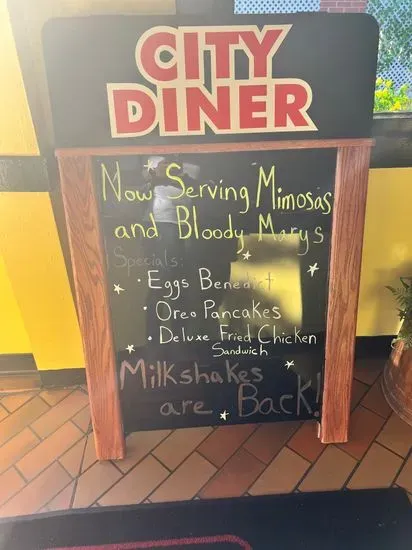 CITY
DINER
Now Serving Mimosas
and Bloody Marys
Specials:
• Eggs Benedict
• Oreo Pancakes
• Deluxe Fried Chicken
Sandwich
Milkshakes
are Back!